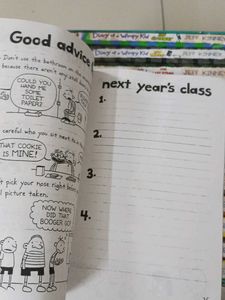 Diary of a Wimpy Kid
JEFF KINNEY
Diary of a Wimpy Kid
JEFF KINNEY
Good advice
next year's class
Don't use the bathroom on the
because there aren't any
COULD YOU
HAND ME
SOME
TOILET
PAPER?
careful who you sit next
THAT COOKIE
IS MINE!
t pick your nose right before
l picture taken.
NOW WHERE
DID THAT
BOOGER GO?
1.
2.
3.
4.